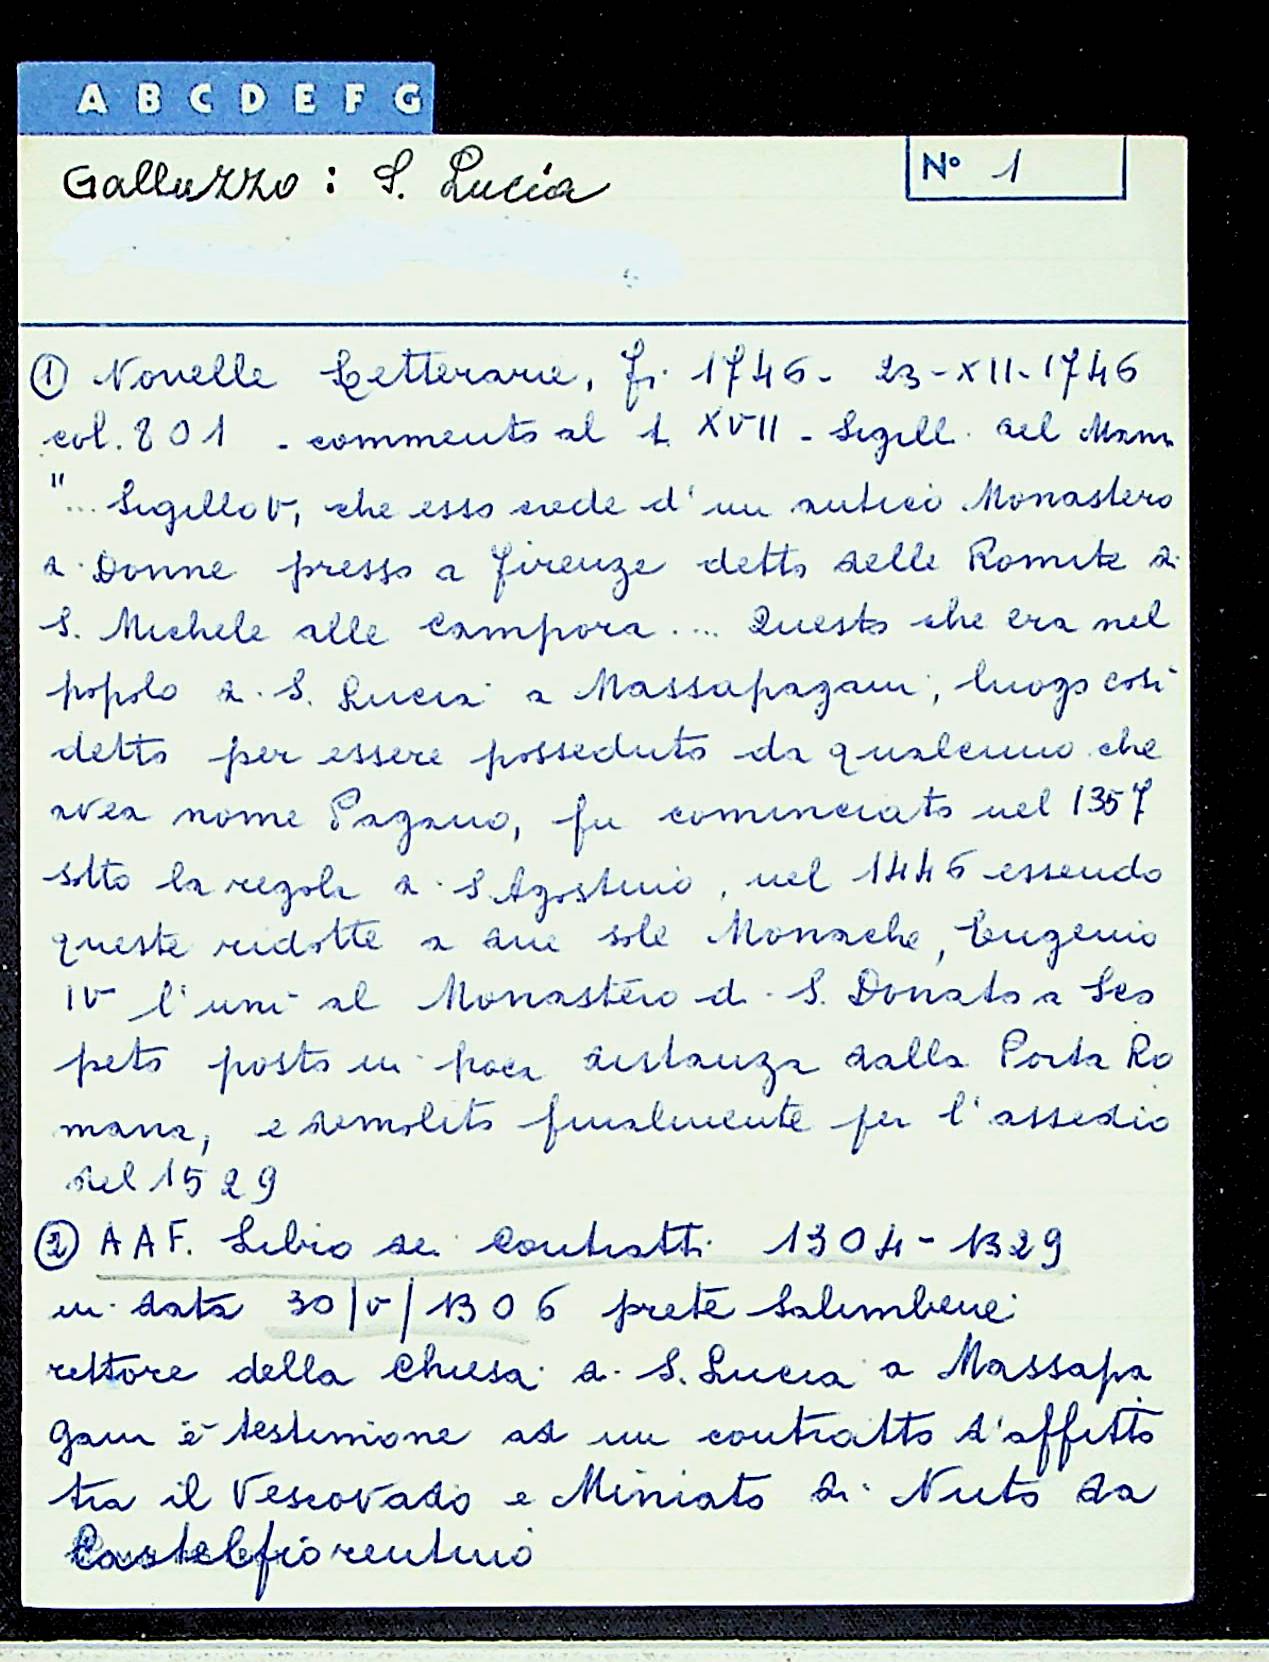 A B C D E F G
Galluzzo : S. Lucia
N° 1
① Novelle Letterarie, Fi. 1746 - 23-XII-1746
col. 801 - commento al t. XVII - Sigill. del Mann
"... Sigillo V, che esso crede d'un antico Monastero
di Donne presso a Firenze detto delle Romite di
S. Michele alle Campora .... Questo che era nel
popolo di S. Lucia a Massapagani, luogo così
detto per essere posseduto da qualcuno che
avea nome Pagano, fu cominciato nel 1357
sotto la regola di S. Agostino, nel 1446 essendo
queste ridotte a due sole Monache, Eugenio
IV l'unì al Monastero di S. Donato a Sco
peto posto in poca distanza dalla Porta Ro
mana, e demolito finalmente per l'assedio
del 1529
② AAF. Libro dei Contratti 1304-1329
in data 30/V/1306 prete Salimbene
rettore della Chiesa di S. Lucia a Massapa
gani è testimone ad un contratto d'affitto
tra il Vescovado e Miniato di Nuto da
Castelfiorentino